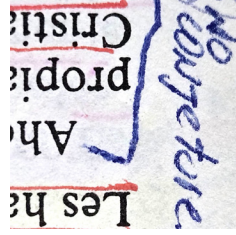 Les ha
Aho
propia
Cristia
NO
conjeture